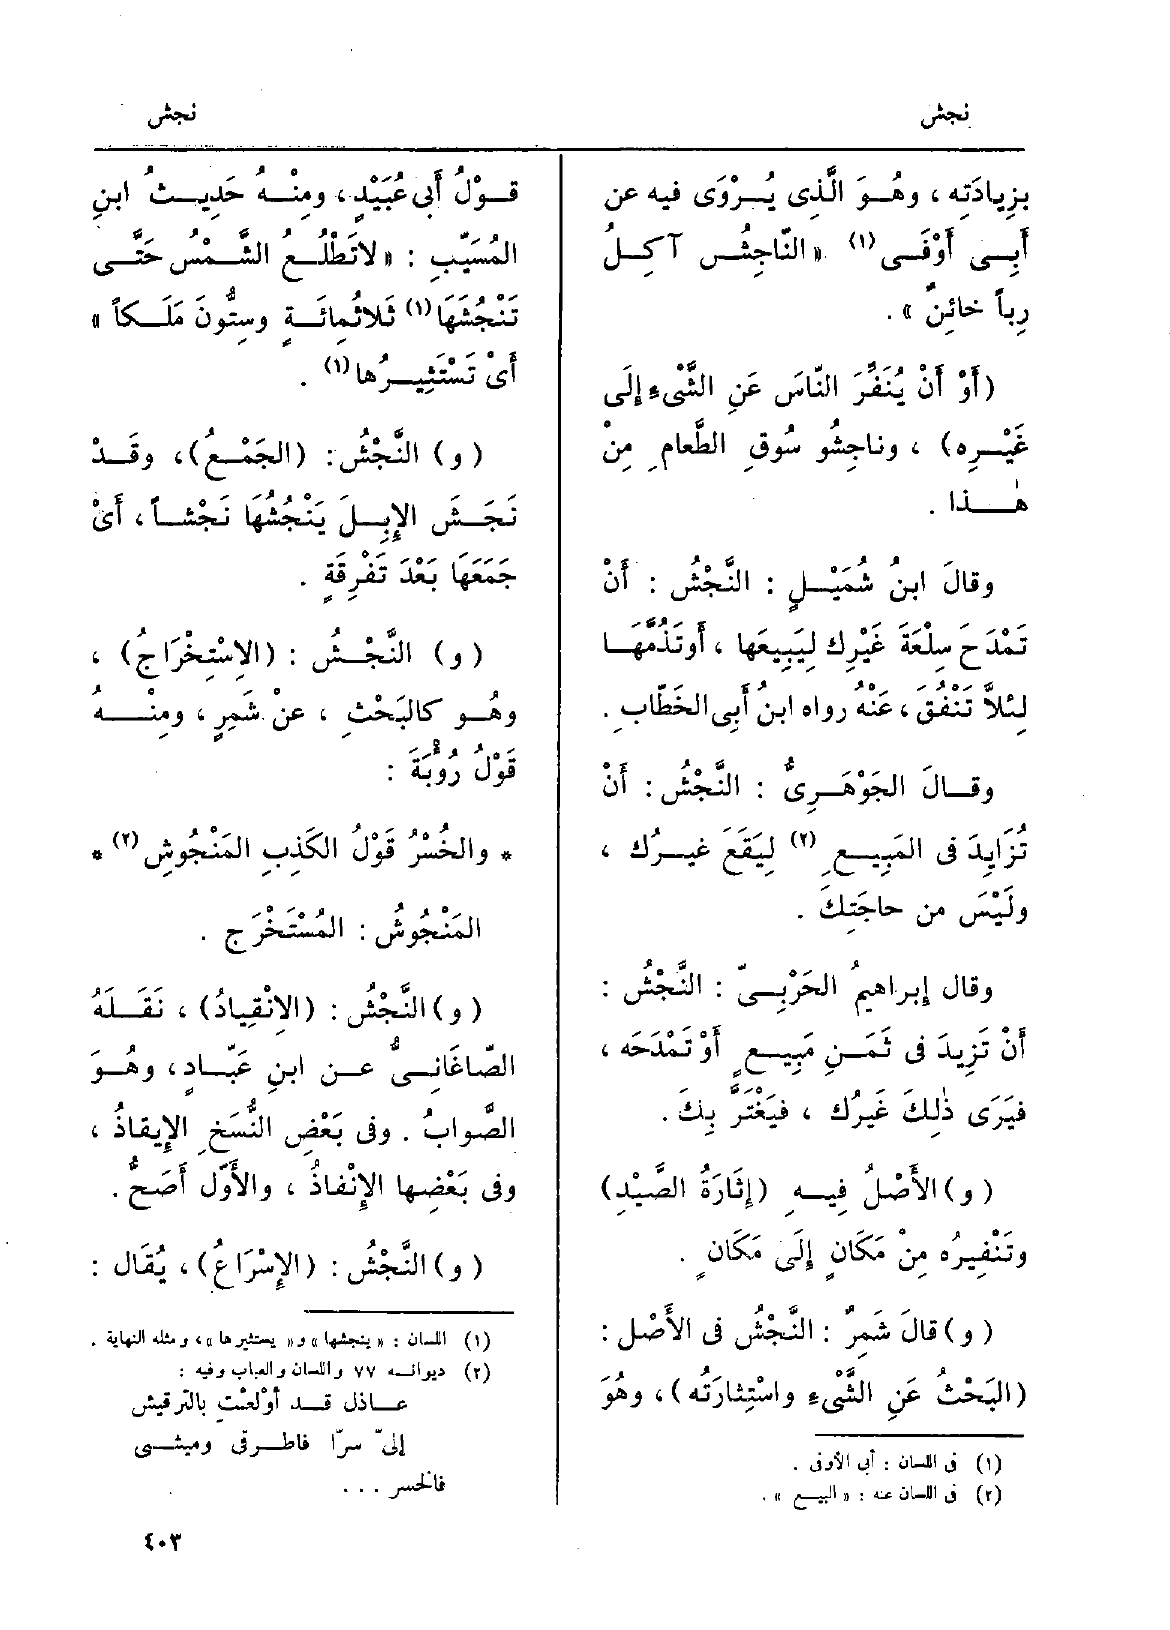 نجش
نجش
بزِيادَتِه ، وهُـوَ الَّذِى يُـرْوَى فيه عن
أَبِـى أَوْفَـى (١) «النّاجِشُ آكِـلُ
رِباً خائِنٌ » .
(أَوْ أَنْ يُنَفِّرَ النّاسَ عَنِ الشَّىْءِ إِلَى
غَيْـرِه) ، وناجِشُو سُوقِ الطَّعامِ مِنْ
هٰـذا .
وقالَ ابنُ شُمَيْـلٍ : النَّجْشُ : أَنْ
تَمْدَحَ سِلْعَةَ غَيْرِك لِيَبِيعَها ، أَو تَذُمَّهـا
لِئلاَّ تَنْفُقَ ، عَنْهُ رواه ابنُ أَبِى الخَطّابِ .
وقـالَ الجَوْهَـرِىُّ : النَّجْشُ : أَنْ
تُزَايِدَ فى المَبِيـعِ (٢) لِيَقَعَ غيـرُك ،
ولَيْسَ من حاجَتِكَ .
وقال إِبراهيمُ الحَرْبِـىّ : النَّجْشُ :
أَنْ تَزِيدَ فى ثَمَـنِ مَبِيـعٍ أَوْ تَمْدَحَه ،
فيَرَى ذٰلِكَ غَيْرُك ، فيَغْتَرَّ بِكَ .
( و) الأَصْلُ فِيـهِ (إِثَارَةُ الصَّيْدِ)
وتَنْفِيرُه مِنْ مَكَانٍ إِلَى مَكَانٍ .
( و) قالَ شَمِرٌ : النَّجْشُ فى الأَصْل :
(البَحْثُ عَنِ الشَّىْءِ واسْتِثارَتُه) ، وهُوَ
(١) فى اللسان : أبى الأوفى .
(٢) فى اللسان عنه : « البيـع » .
قَـوْلُ أَبِى عُبَيْدٍ ، ومِنْـهُ حَدِيـثُ ابنِ
المُسَيّبِ : «لا تَطْلُـعُ الشَّمْسُ حَتَّـى
تَنْجُشَهَا (١) ثَلاثُمائَـةٍ وسِتُّونَ مَلَـكاً »
أَىْ تَسْتَثِيـرُها (١) .
( و) النَّجْشُ : (الجَمْـعُ) ، وقَـدْ
نَجَـشَ الإِبِـلَ يَنْجُشُهَا نَجْشـاً ، أَىْ
جَمَعَهَا بَعْدَ تَفْرِقَةٍ .
( و) النَّجْـشُ : (الاِسْتِخْرَاجُ) ،
وهُـو كالبَحْثِ ، عنْ شَمِرٍ ، ومِنْـهُ
قَوْلُ رُؤبَةَ :
* والخُسْرُ قَوْلُ الكَذِبِ المَنْجُوشِ (٢) *
المَنْجُوشُ : المُسْتَخْرَج .
( و) النَّجْشُ : (الانْقِيادُ) ، نَقَـلَهُ
الصّاغَانِـىُّ عـن ابنِ عَبّـادٍ ، وهُـوَ
الصَّوابُ . وفى بَعْضِ النُّسَخِ الإِيقاذُ ،
وفى بَعْضِها الإِنْفاذُ ، والأَوّل أَصَحُّ .
( و) النَّجْشُ : (الإِسْرَاعُ) ، يُقَال :
(١) اللسان : « ينجشها » و« يستثيرها » ، ومثله النهاية .
(٢) ديوانـه ٧٧ واللسان والعباب وفيه :
عـاذل قـد أُولِعْتِ بالترقيش
إلىّ سرًّا فاطرقى وميشـى
فالخسر ...
٤٠٣